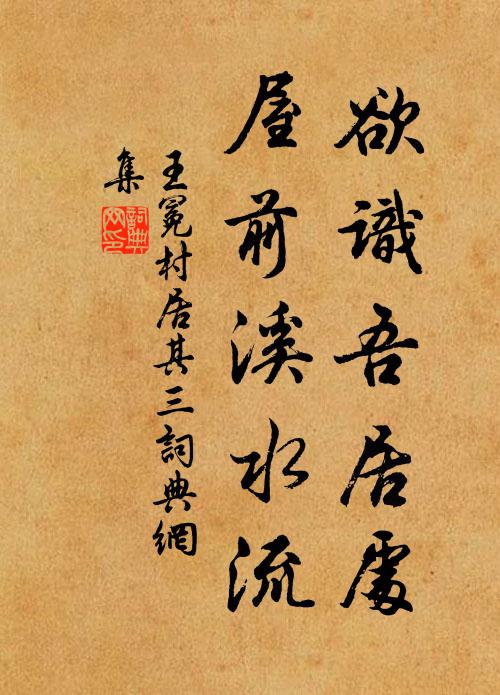 欲識吾居處
屋前溪水流
王冕村居其三詞典網
集
詞典網印